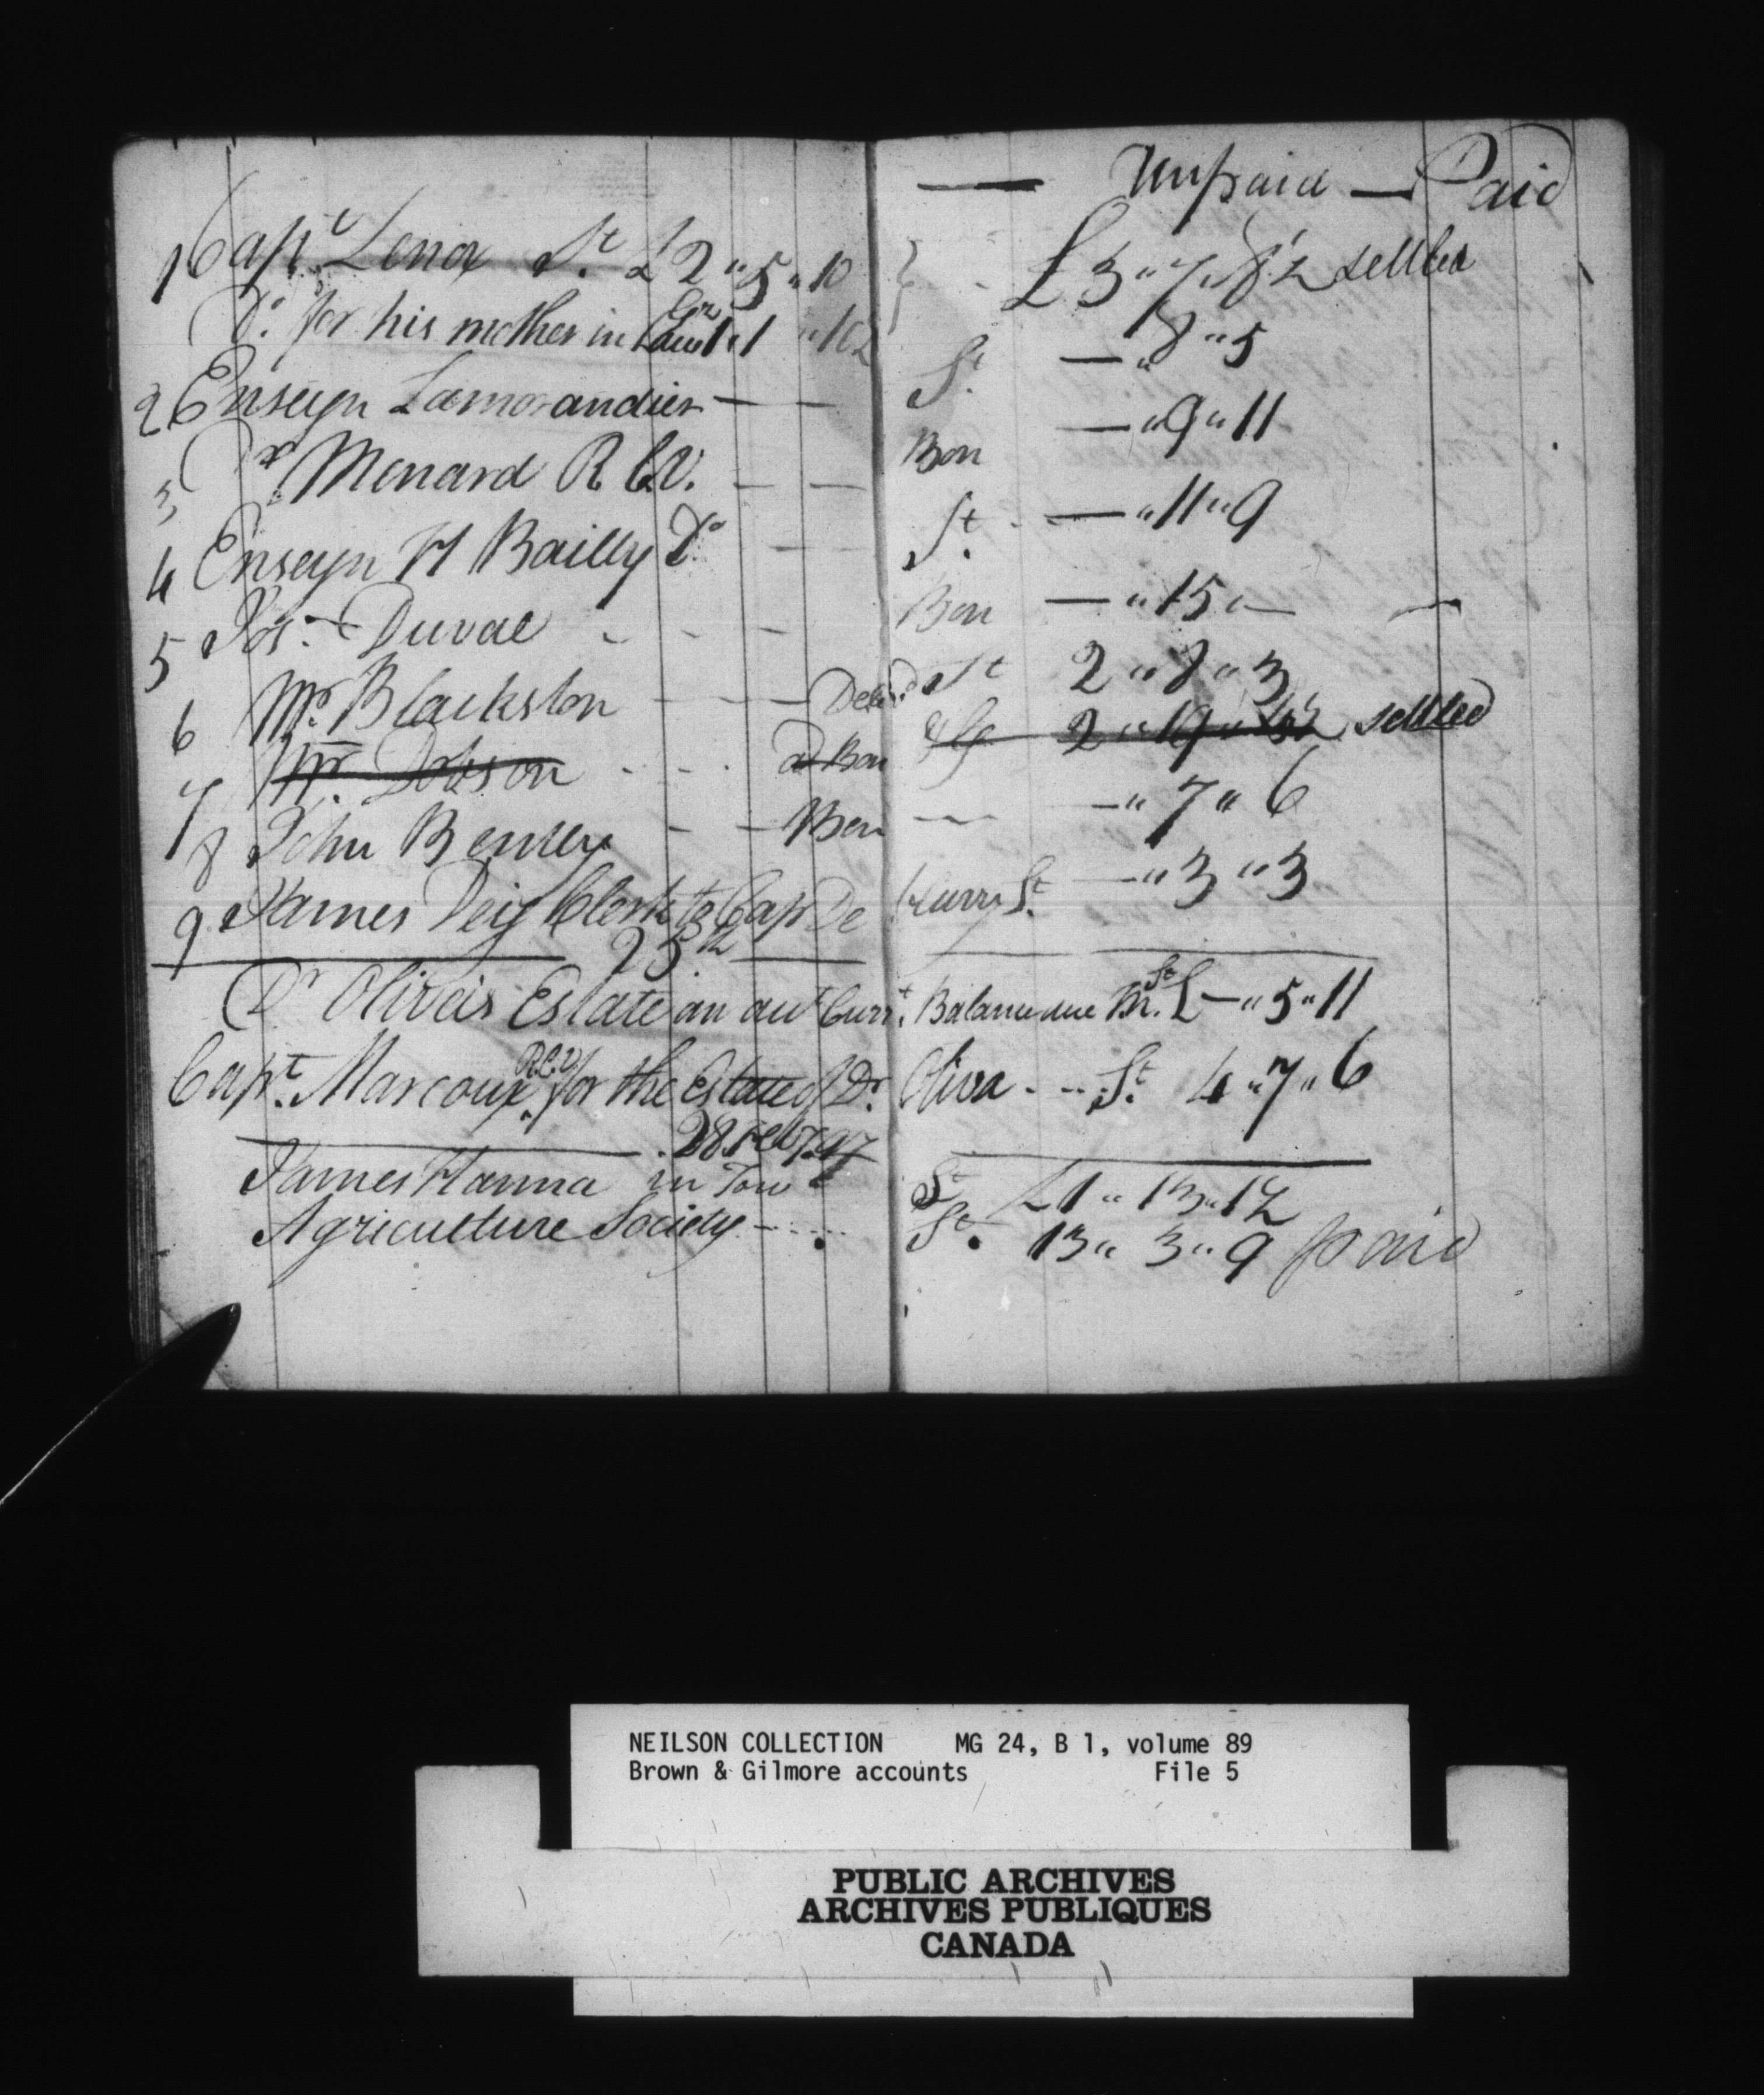 — Unpaid — Paid
1 Capt. Lenox St. £2 " 5 " 10 } - £3 " 7 " 8½ settled
Do. for his mother in Law 1 " 1 " 10½
2 Enseyn Lamorandier — — St. — " 8 " 5
3 Dr Menard R C V. — — Bon — " 9 " 11
4 Enseyn H Bailly Do — St. - — " 11 " 9
5 Jos. Duval - - - Bon — " 15 " —
6 Mr. Blackston - - - St 2 " 8 " 3
7 Mr. Dobson - - - Bon 2 " 19 " settled
8 John Bentley - - Bon — — " 7 " 6
9 James Deig Clerk to Cap De St. — " 3 " 3
25th
Dr Olivas Estate an aut Curt. Balance due Mr. St £ — " 5 " 11
Capt. Marcoux R.C.V. for the Estate of Dr. Oliva - - - St. 4 " 7 " 6
28 Feb 797
James Hanna in Tow St £1 " 13 " 1½
Agriculture Society - - - - St. 13 " 3 " 9 paid
NEILSON COLLECTION MG 24, B 1, volume 89
Brown & Gilmore accounts File 5
PUBLIC ARCHIVES
ARCHIVES PUBLIQUES
CANADA